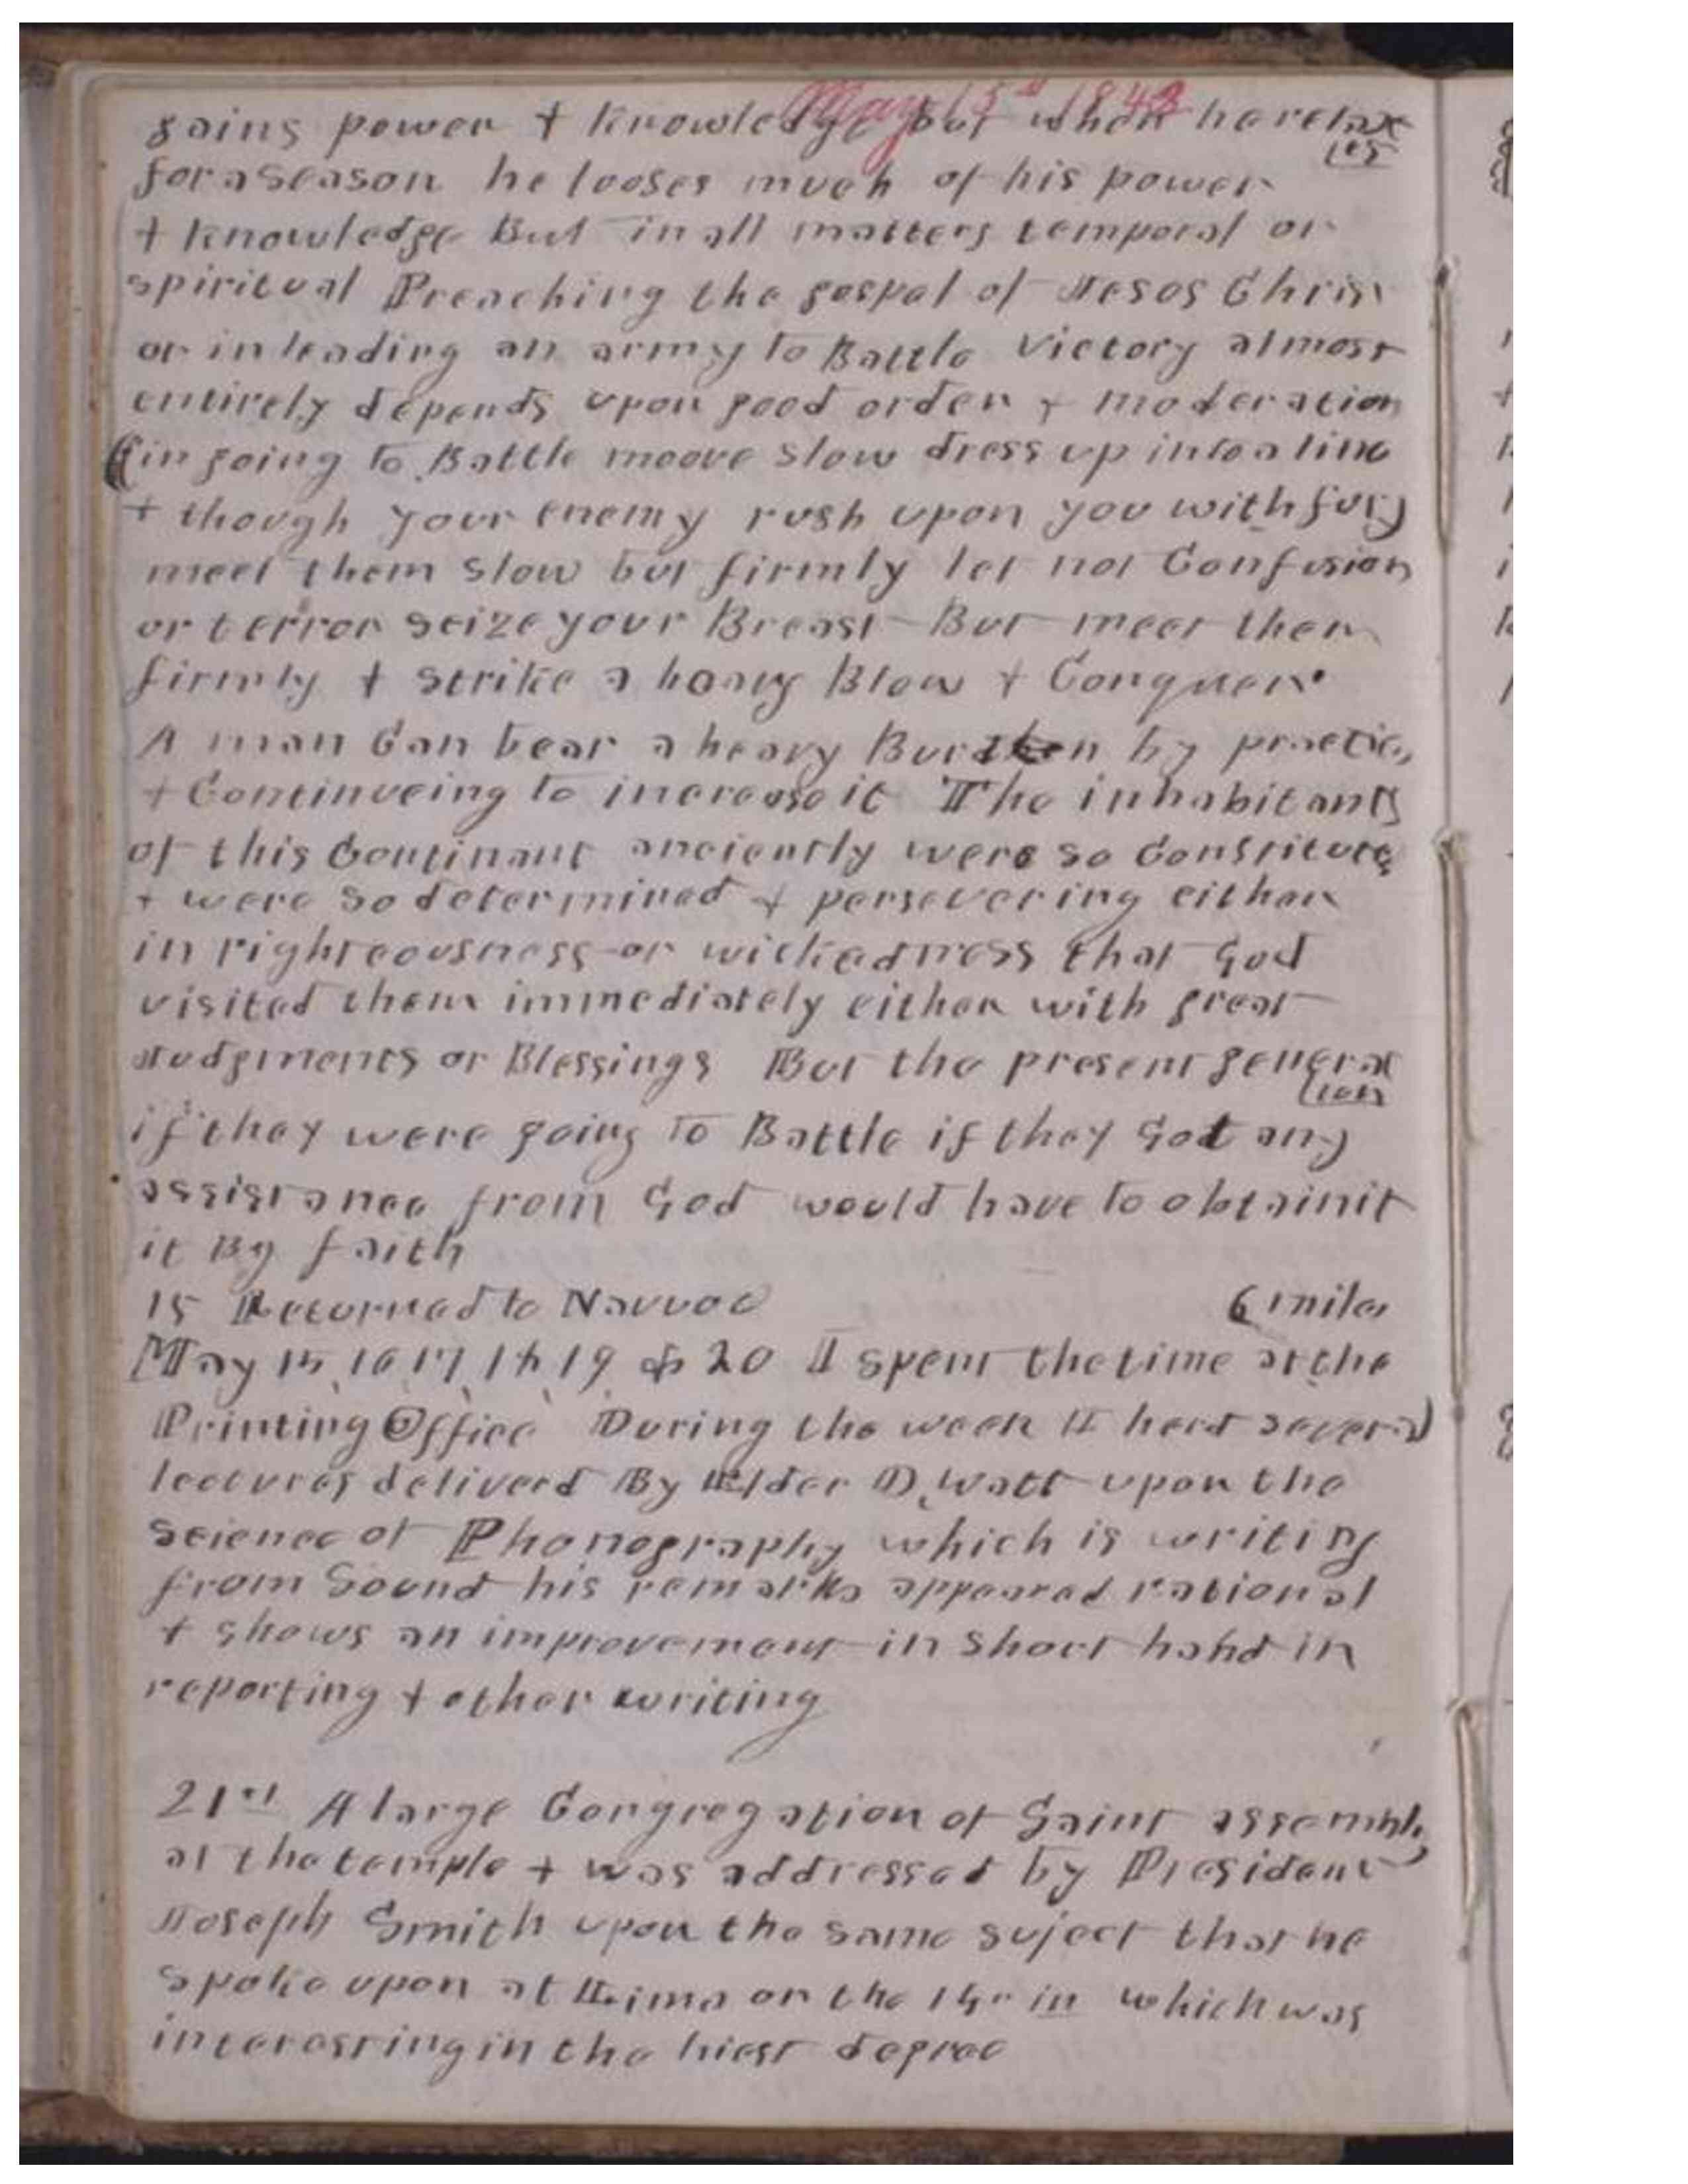 May 15th 1843
gains power + knowledge but when he relax
les
for a season he looses much of his power
+ knowledge But in all matters temporal or
spiritual Preaching the gospel of Jesos Chris
or in leading an army to Battle victory almost
entirely depends upon good order + moderation
(in going to Battle moove slow dress up into a line
+ though your enemy rush upon you with fury
meet them slow but firmly let not Confusion
or terror seize your Breast But meet them
firmly + strike a heavy Blow + Conquer.
A man Can bear a heavy Burden by practic
+ Continueing to increase it The inhabitants
of this Continant anciently were so Constitute
+ were so determined + persevering either
in righteousness or wickedness that God
visited them immediately either with great
Judgments or Blessings But the present genera
tion
if they were going to Battle if they Got any
assistance from God would have to obtain it
it By faith
15 Returned to Nauvoo 6 miles
May 15, 16, 17, 18, 19 & 20 I spent the time at the
Printing Office During the week I herd several
lectures deliverd By Elder D, Watt upon the
science of Phonography which is writing
from Sound his remarks appeared rational
+ shows an improvement in short hand in
reporting + other writing
21st A large Congregation of Saint assembl
at the temple + was addressed by President
Joseph Smith upon the same suject that he
spoke upon at Lima on the 14" in which was
interesting in the hiest degree